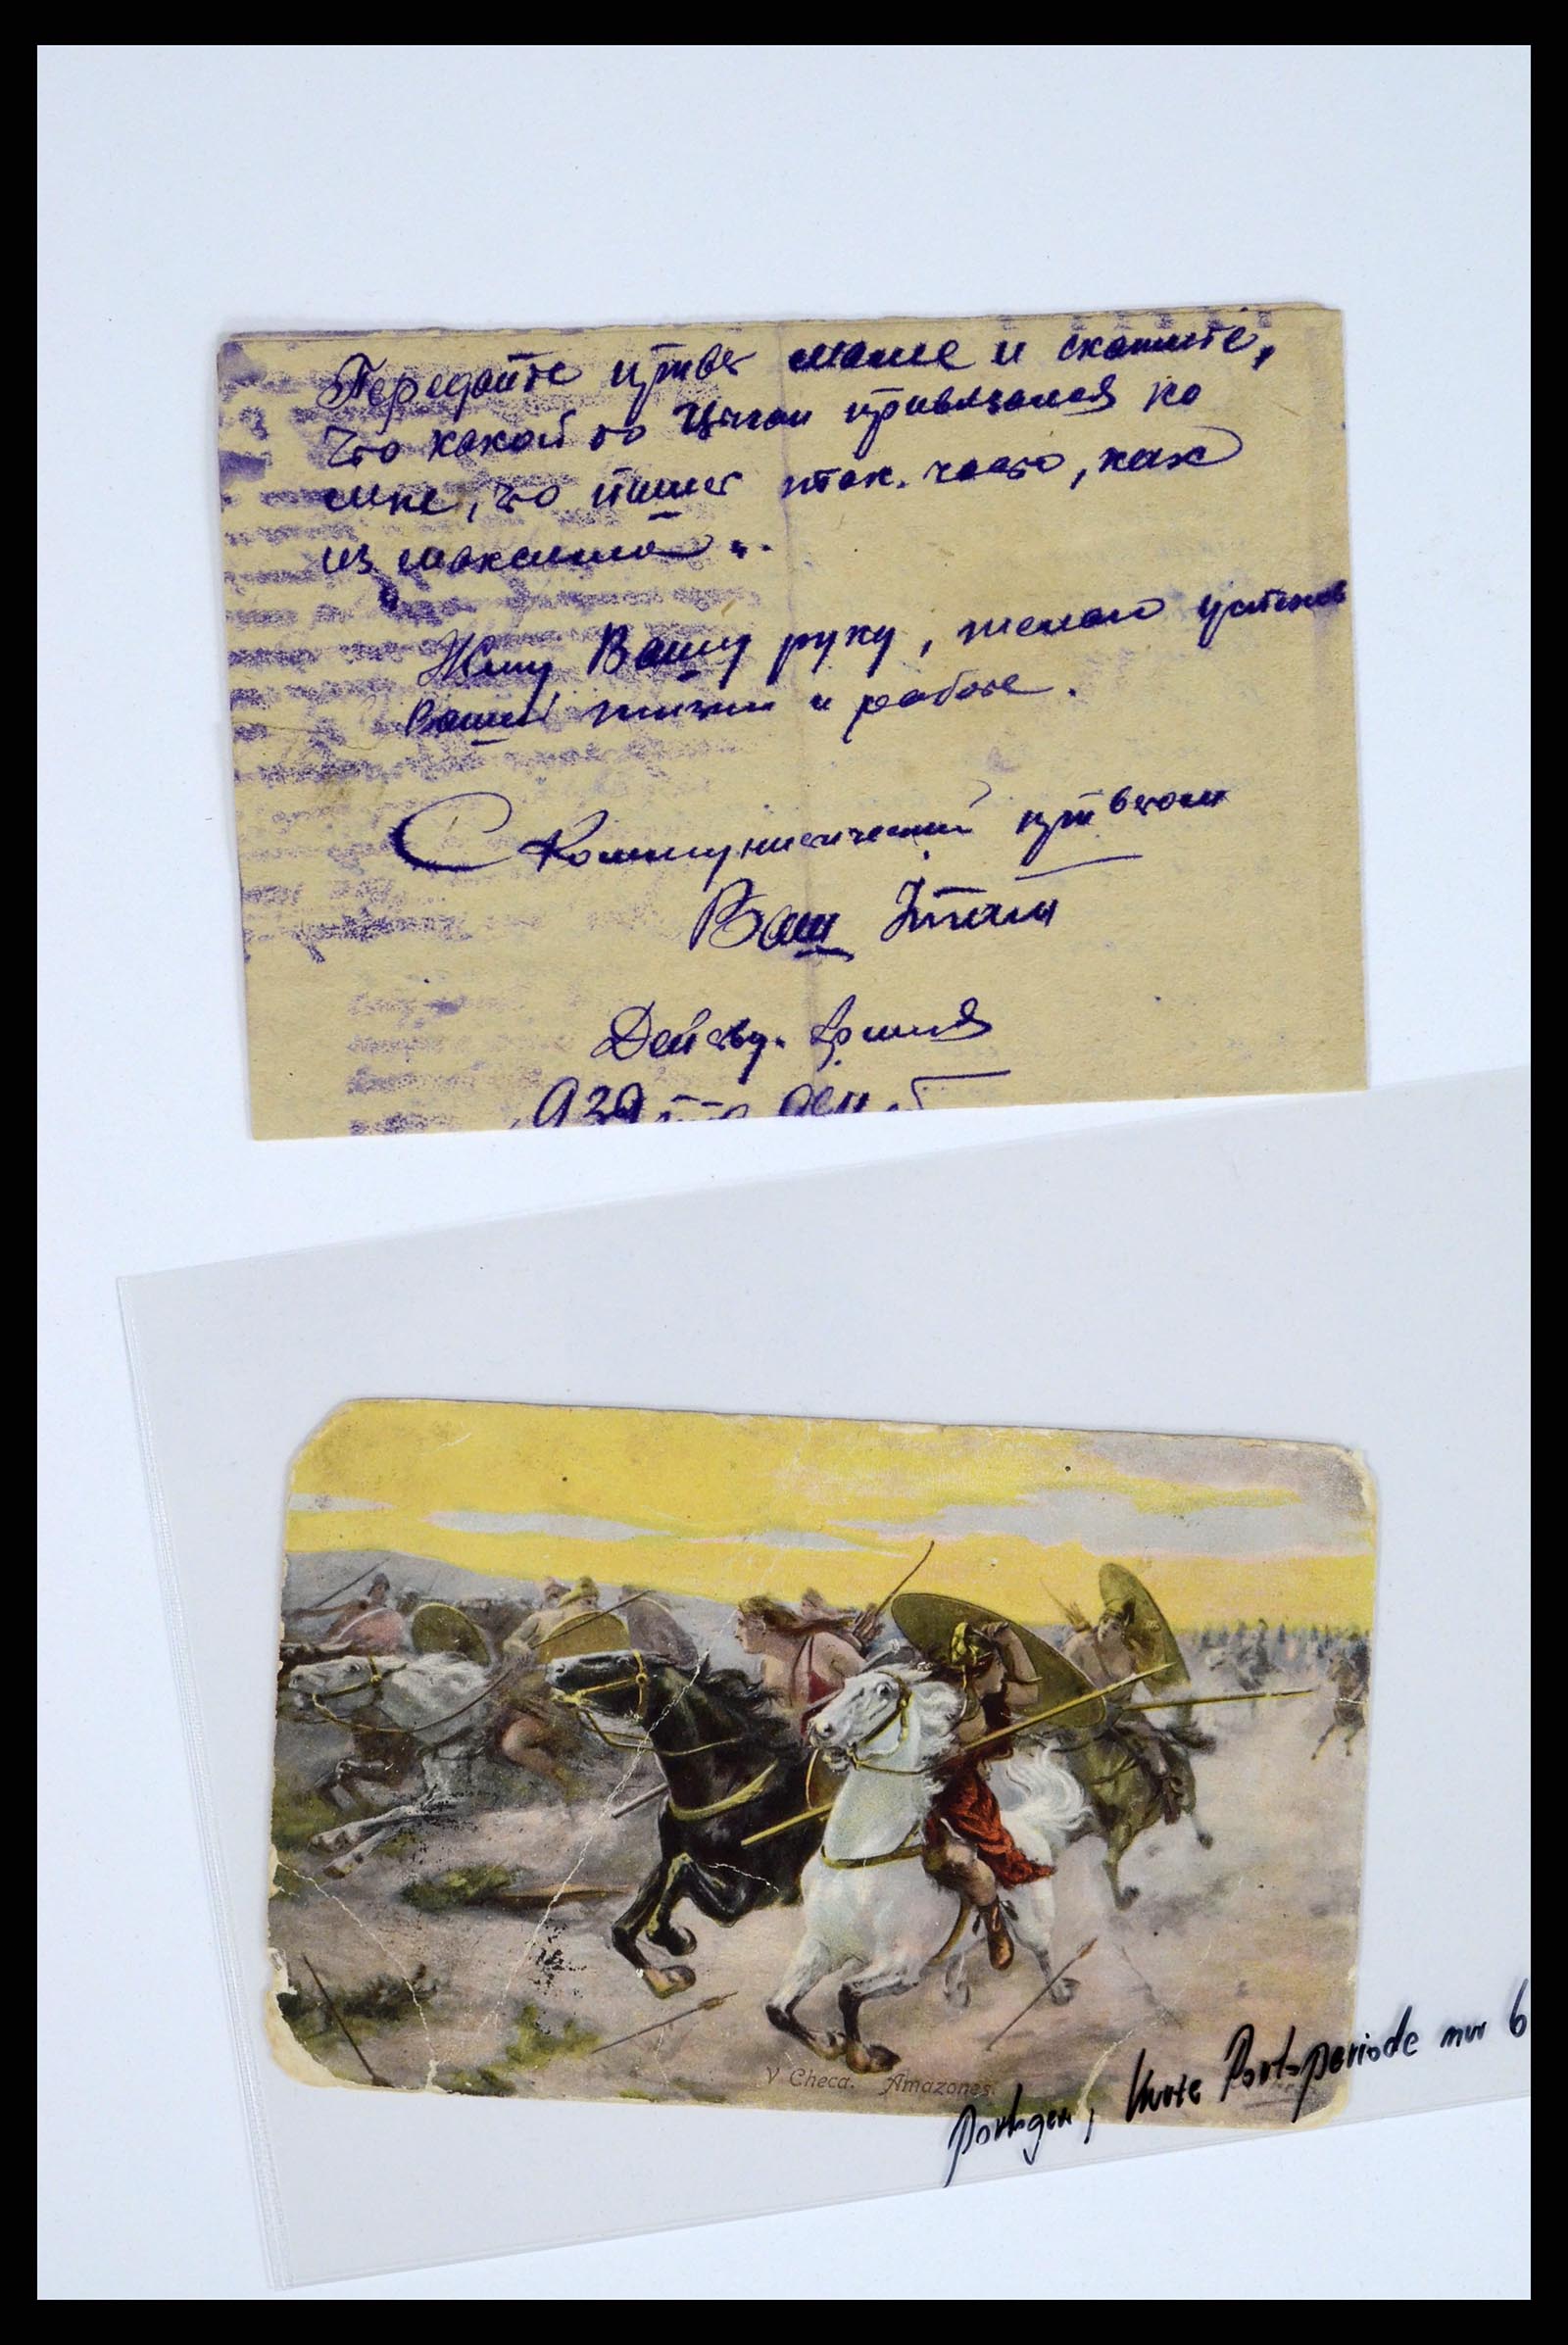 Передайте привет маме и скажите,
что какой то Цыган привязался ко
мне, что пишет так часто, как
из
Жму Вашу руку, желаю успехов
Вашей жизни и работе.
С Коммунистический приветом
Ваш
Действу. Армия
939
V Checa. Amazones.
Portogen, kurze Portoperiode nur 6